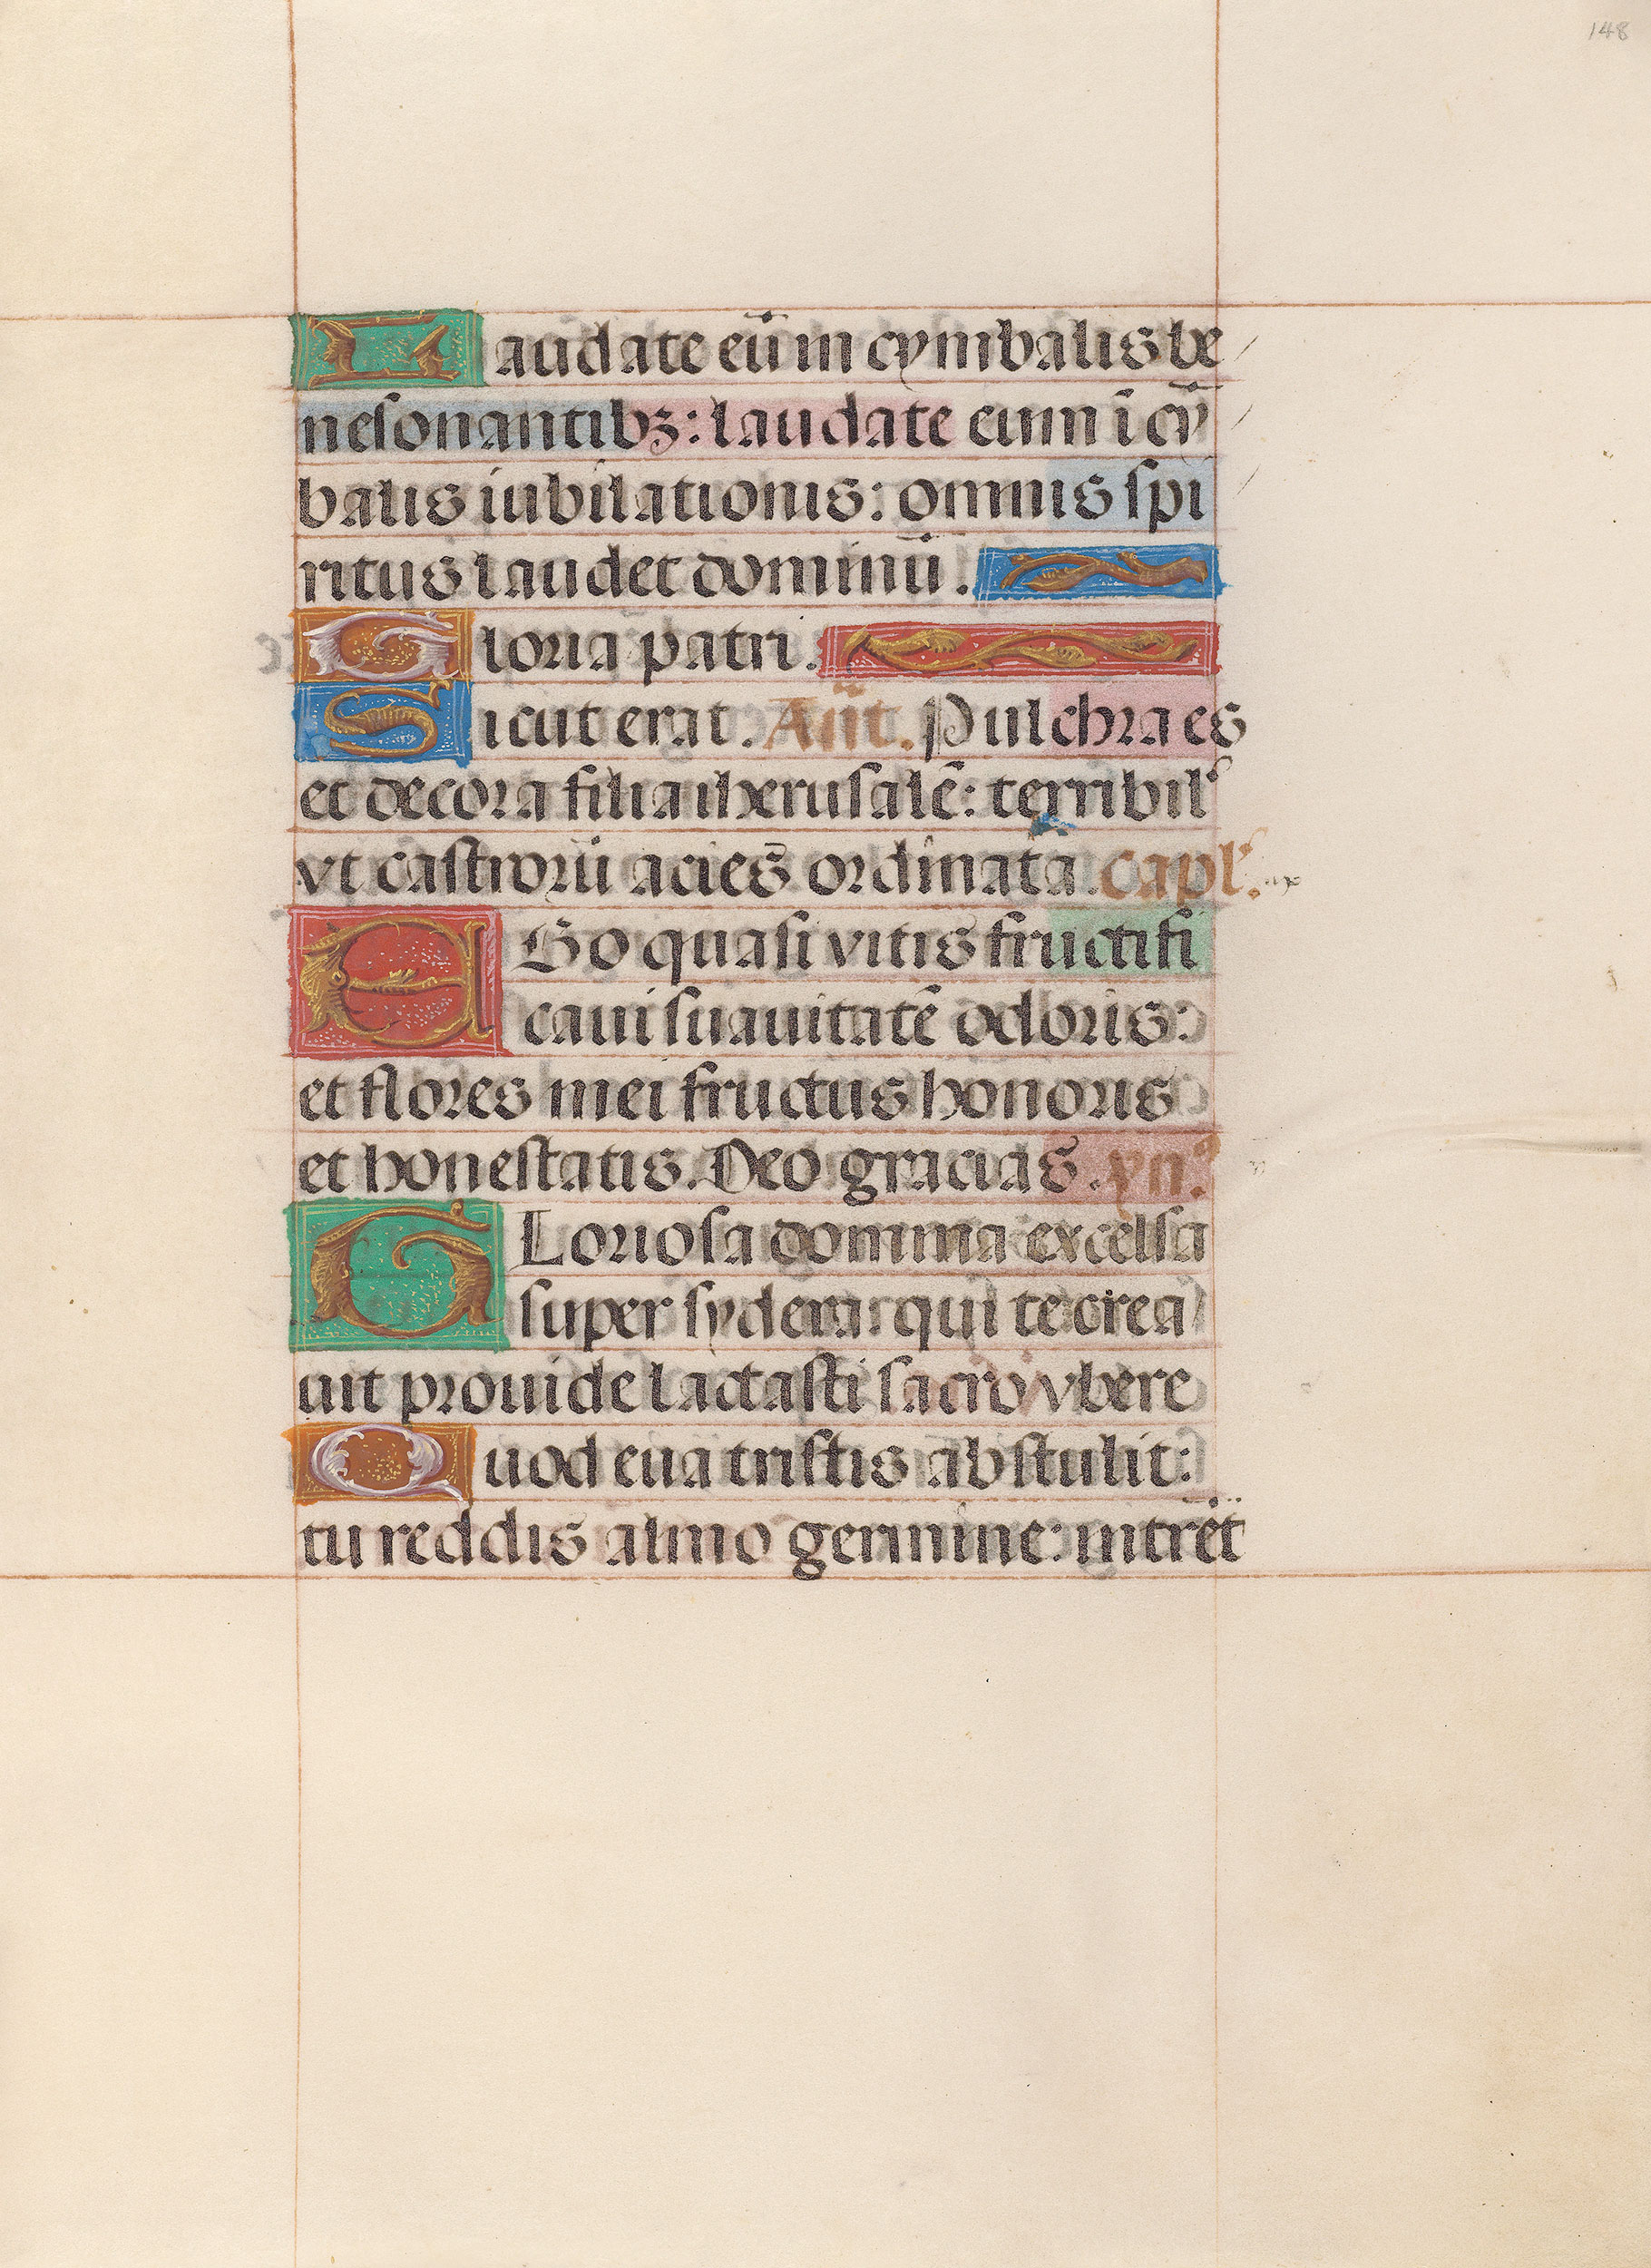 148
Laudate eū in cymbalis be
nesonantibꝫ: laudate eum ī cȳ
balis iubilationis: omnis spi
ritus laudet dominū.
Gloria patri.
Sicut erat. Añt. Pulchra es
et decora filia iherusalē: terribil᷒
vt castrorū acies ordinata. capl᷒.
EGo quasi vitis fructifi
caui suauitatē odoris:
et flores mei fructus honoris
et honestatis. Deo gracias. yn᷒.
GLoriosa domina excelsa
super sydera: qui te crea
uit prouide lactasti sacro vbere
Quod eua tristis abstulit:
tu reddis almo germine: intrēt